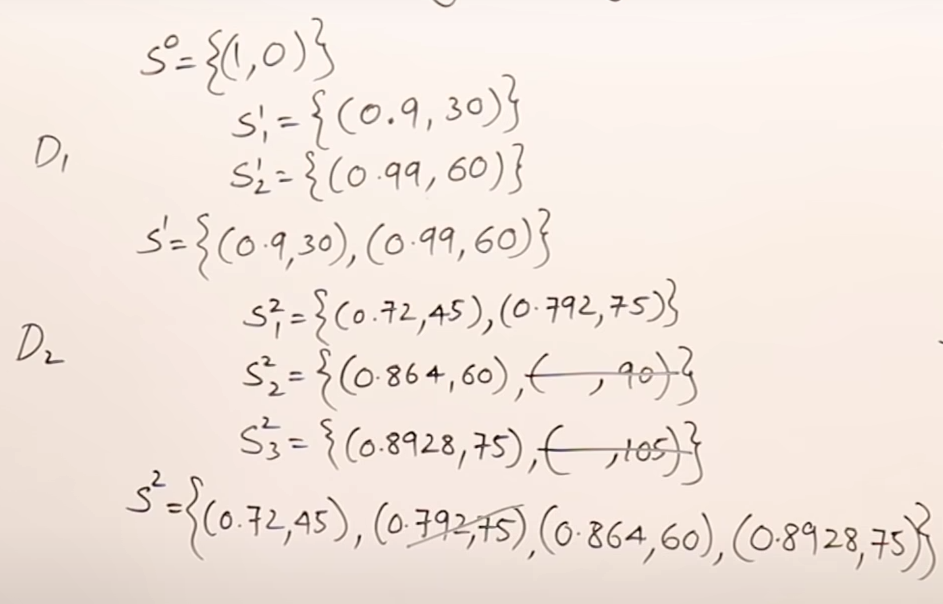 S⁰={(1,0)}
S¹₁={(0.9,30)}
D₁
S¹₂={(0.99,60)}
S¹={(0.9,30),(0.99,60)}
S²₁={(0.72,45),(0.792,75)}
D₂
S²₂={(0.864,60),( ,90)}
S²₃={(0.8928,75),( ,105)}
S²={(0.72,45),(0.792,75),(0.864,60),(0.8928,75)}